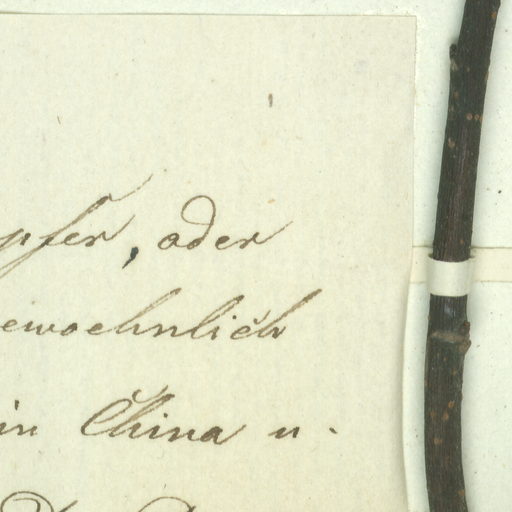 pfer, oder
ewoehnlich
in China u.